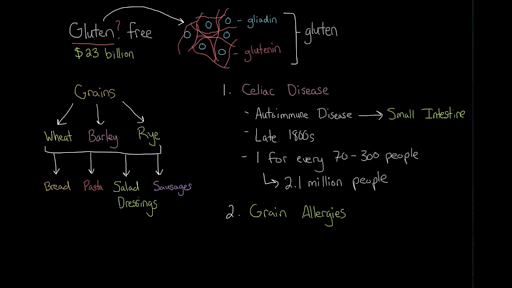 Gluten? free
$23 billion
- gliadin
- glutenin
gluten
Grains
Wheat Barley Rye
Bread Pasta Salad Dressings Sausages
1. Celiac Disease
- Autoimmune Disease → Small Intestine
- Late 1800s
- 1 for every 70-300 people
↳ 2.1 million people
2. Grain Allergies